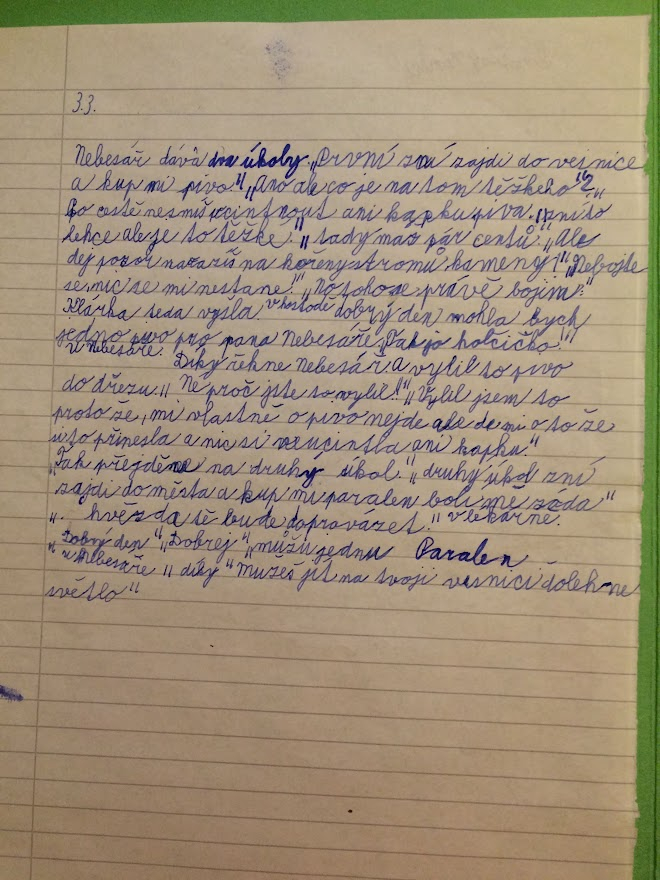 3.3.
Nebesář dává dva úkoly „První zní zajdi do vesnice
a kup mi pivo." „Ano ale co je na tom těžkého"?„
Po cestě nesmíš ucintnout ani kapku piva. „zní to
lehce ale je to těžké." „tady máš pár centů." „Ale
dej pozor narazíš na kořeny stromů kameny!" „Nebojte
se nic se mi nestane." „No toho se právě bojím."
Klárka teda vyšla. v hospodě dobrý den mohla bych
jedno pivo pro pana Nebesáře „Tak jo holčičko."
u nebesáře. Díky řekne Nebesář a vylil to pivo
do dřezu. „Ne proč jste to vylil!" „Vylil jsem to
protože, mi vlastně o pivo nejde ale de mi o to že
si to přinesla a nic si neucintla ani kapku."
„Tak přejděme na druhý úkol." „druhý úkol zní
zajdi do města a kup mi paralen bolí mě záda"
„. hvězda tě bude doprovázet." v lékárně.
„Dobrý den" „Dobrej" „můžu jednu Paralen
u Nebesáře „díky" Mužeš jít na tvoji vesnici dolehne
světlo"